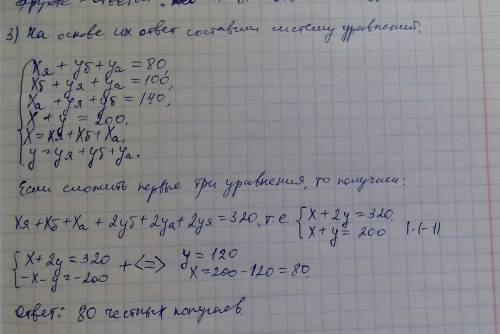 3) На основе их ответ составим систему уравнений.
Xя + yб + yа = 80
Xб + yя + yа = 100,
Xа + yя + yб = 140,
X + y = 200,
X = Xя + Xб + Xа,
y = yя + yб + yа.
Если сложить первые три уравнения, то получим:
Xя + Xб + Xа + 2yб + 2yа + 2yя = 320, т.е { X + 2y = 320
X + y = 200 | · (-1)
{ X + 2y = 320
-X - y = -200 + <=> y = 120
X = 200 - 120 = 80.
Ответ: 80 честных попугаев.